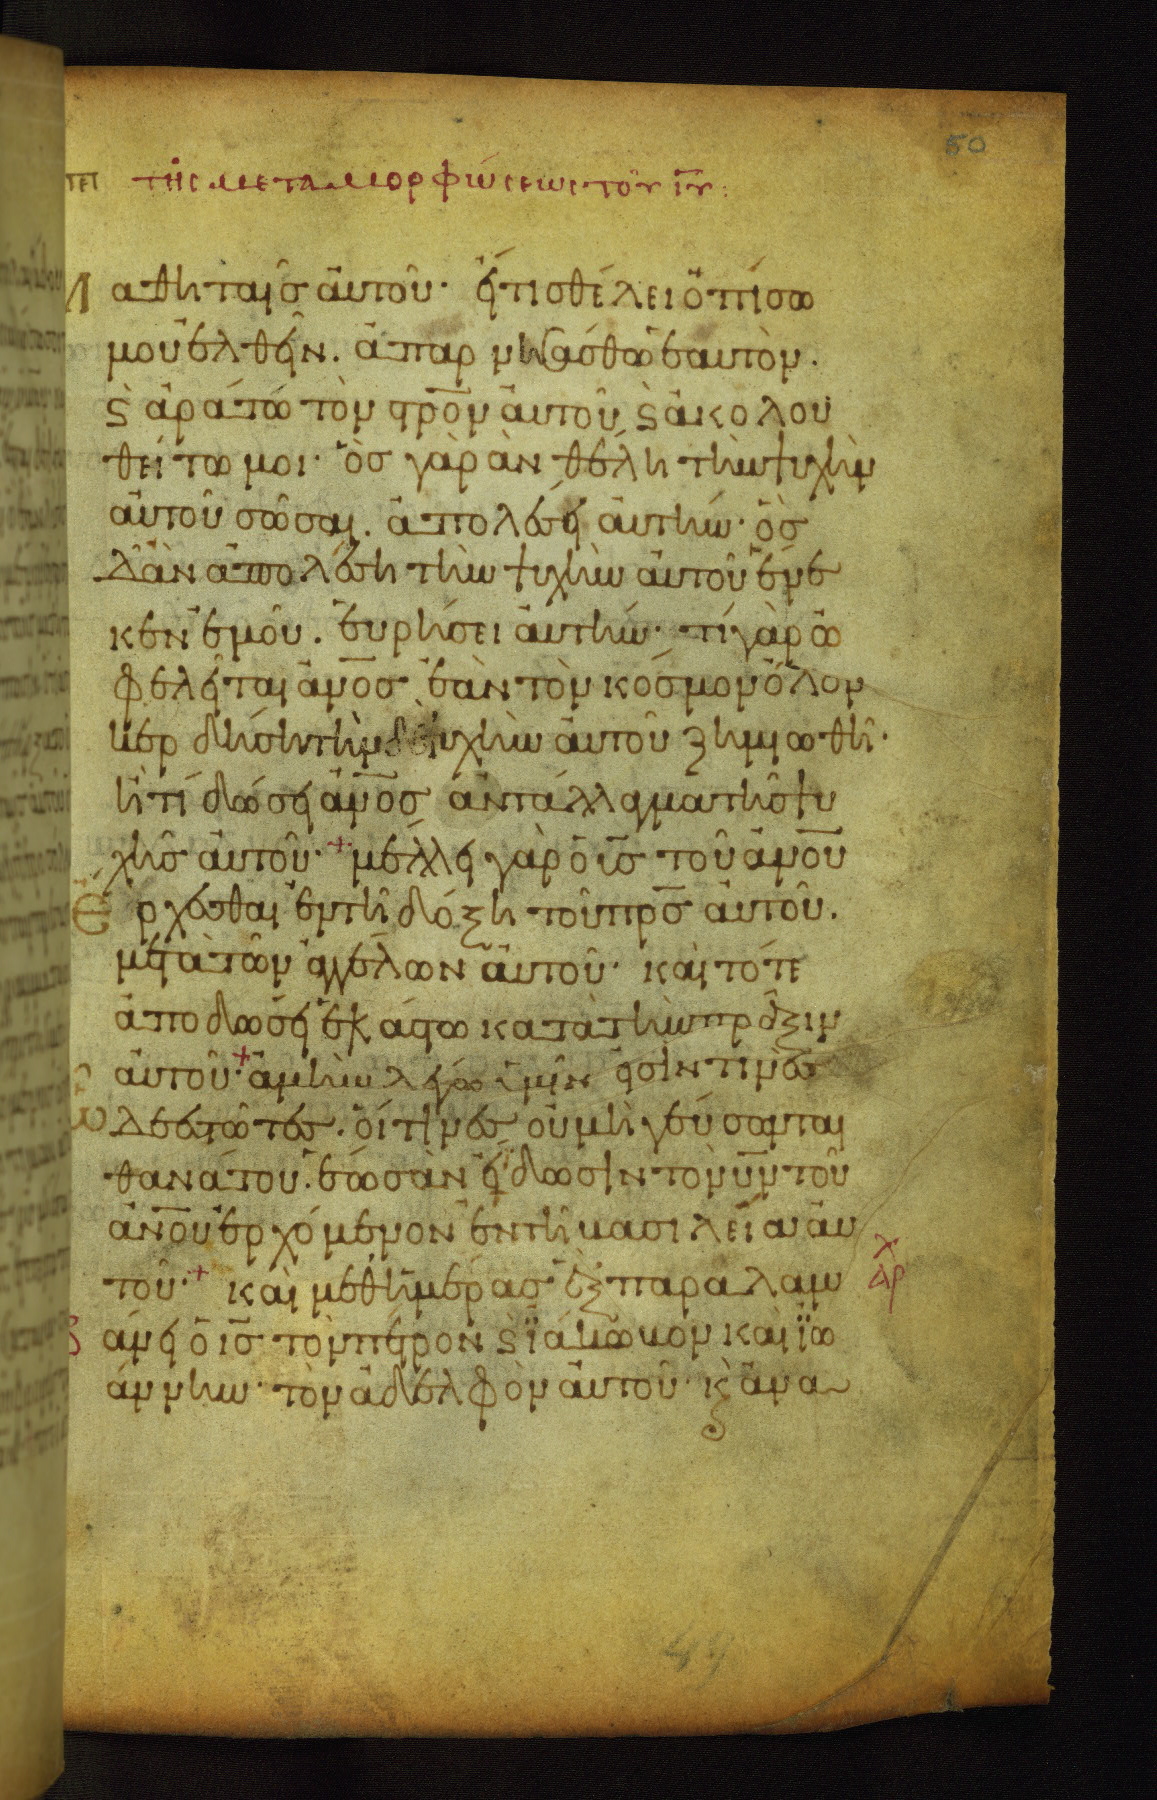 50
περ τῆς μεταμορφώσεως τοῦ ἰυ:
μαθηταῖς ἀυτοῦ· ἔι τισ θέλει ὀπίσω
μου ἐλθεῖν. ἀπαρνησάσθω ἑαυτὸν.
ϗ ἀράτω τὸν σρον ἀυτοῦ ϗ ἀκολου
θείτω μοι· ὃσ γὰρ ἂν θέλη τὴν ψυχὴν
ἀυτοῦ σῶσαι. ἀπολέσει ἀυτήν· ὃσ
δ' ἂν ἀπολέση τὴν ψυχὴν ἀυτοῦ ἕνε
κεν ἐμοῦ. ἑυρήσει ἀυτήν· τί γὰρ ὠ
φελεῖται ἀνοσ ἐὰν τὸν κόσμον ὅλον
κερδήση τὴν δὲ ψυχὴν ἀυτοῦ ζημιωθῆ·
ἢ τί δώσει ἀνοσ ἀντάλλαγμα τῆσ ψυ
χῆσ ἀυτοῦ· + μέλλει γὰρ ὁ ισ τοῦ ἀνου
Ἔρχεσθαι ἐν τῆ δόξη τοῦ πρσ ἀυτοῦ.
μετὰ τῶν ἀγγέλων ἀυτοῦ· καὶ τότε
ἀποδώσει ἑκάστω κατὰ τὴν πρᾶξιν
ἀυτοῦ· + ἀμὴν λέγω ὑμῖν εἰσίν τινὲσ
ὧδε ἑστῶτεσ. ὅιτινεσ ὀυ μὴ γεύσωνται
θανάτου. ἕωσ ἂν ἴδωσιν τὸν υν τοῦ
ἀνου ἐρχόμενον ἐν τῆ βασιλεία ἀυ
τοῦ· + καὶ μεθ' ἡμέρασ ἓξ παραλαμβ
άνει ὁ ισ τὸν πέτρον ϗ ἰάκωβον καὶ ἰω
άννην· τὸν ἀδελφὸν ἀυτοῦ· ϗ ἀνα
αρχ
49